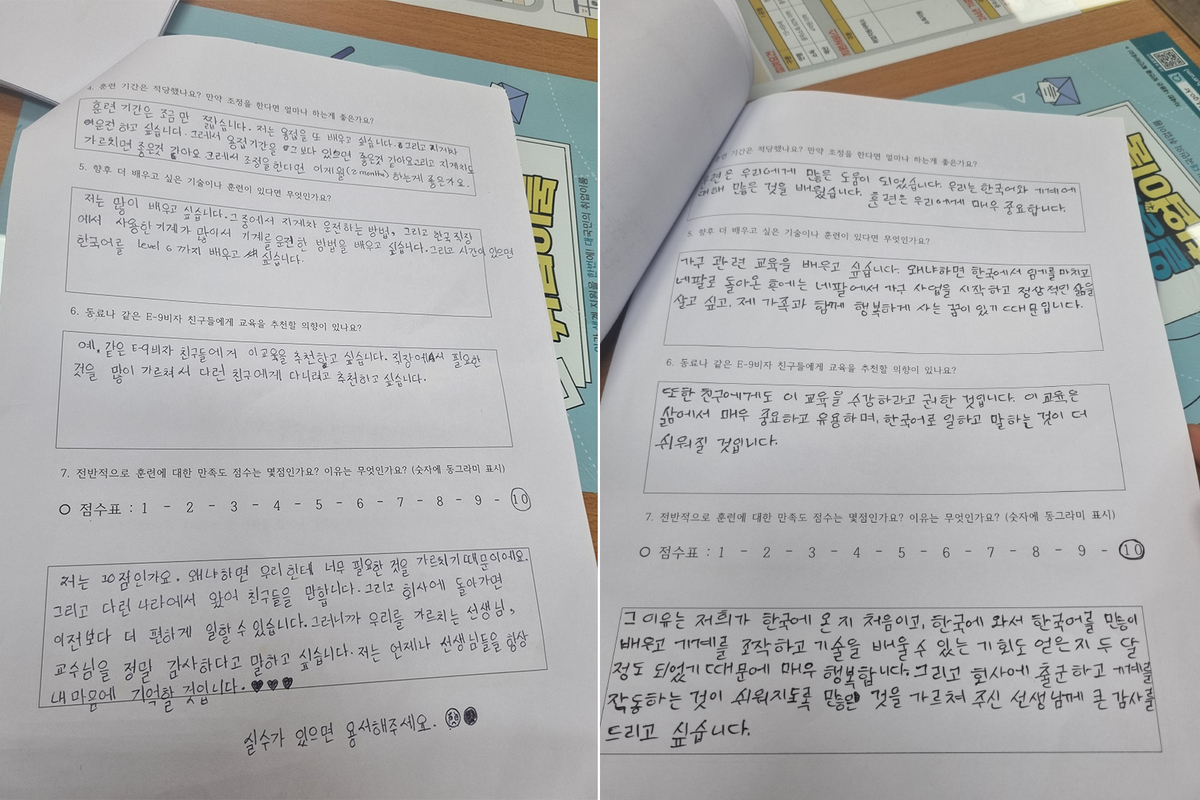 4. 훈련 기간은 적당했나요? 만약 조정을 한다면 얼마나 하는게 좋은가요?
훈련 기간은 조금 만 짧습니다. 저는 용접을 또 배우고 싶습니다. 그리고 지게차
운전하고 싶습니다. 그래서 용접기간을 그보다 있으면 좋은것 같아요 그리고 지게차도
가르치면 좋은것 같아요 그래서 조정을한다면 이게월(2 months) 하는게 좋은가요.
5. 향후 더 배우고 싶은 기술이나 훈련이 있다면 무엇인가요?
저는 많이 배우고 싶습니다. 그중에서 지게차 운전하는 방법, 그리고 한국 직장
에서 사용한기계가 많이서 기계를운련한 방법을 배우고 싶습니다. 그리고 시간이 있으면
한국어를 level 6 까지 배우고 싶습니다.
6. 동료나 같은 E-9비자 친구들에게 교육을 추천할 의향이 있나요?
예, 같은 E-9비자 친구들에게 이교육을 추천합고 싶습니다. 직장에서 필요한
것을 많이 가르쳐서 다런 친구에게 다니려고 추천하고 싶습니다.
7. 전반적으로 훈련에 대한 만족도 점수는 몇점인가요? 이유는 무엇인가요? (숫자에 동그라미 표시)
○ 점수표 : 1 - 2 - 3 - 4 - 5 - 6 - 7 - 8 - 9 - 10
저는 10점인가요. 왜냐하면 우리한테 너무 필요한 것을 가르치기 때문이에요.
그리고 다런 나라에서 왔어 친구들을 만합니다. 그리고 회사에 돌아가면
이전보다 더 편하게 일할 수 있습니다. 그러니까 우리를 가르치는 선생님,
교수님을 정밀 감사하다고 말하고 싶습니다. 저는 언제나 선생님들을 항상
내 마음에 기억할 것입니다. ♥♥♥
실수가 있으면 용서해주세요.
기간은 적당했나요? 만약 조정을 한다면 얼마나 하는게 좋은가요?
련은 우리에게 많은 도움이 되었습니다. 우리는 한국어와 기계에
대해 많은 것을 배웠습니다. 훈련은 우리에게 매우 중요합니다.
5. 향후 더 배우고 싶은 기술이나 훈련이 있다면 무엇인가요?
가구 관련 교육을 배우고 싶습니다. 왜냐하면 한국에서 임기를 마치고
네팔로 돌아온 후에는 네팔에서 가구 사업을 시작하고 정상적인 삶을
살고 싶고, 제 가족과 함께 행복하게 사는 꿈이 있기 때문입니다.
6. 동료나 같은 E-9비자 친구들에게 교육을 추천할 의향이 있나요?
또한 친구에게도 이 교육을 수강하라고 권한 것입니다. 이 교육은
삶에서 매우 중요하고 유용하며, 한국어로 일하고 말하는 것이 더
쉬워질 것입니다.
7. 전반적으로 훈련에 대한 만족도 점수는 몇점인가요? 이유는 무엇인가요? (숫자에 동그라미 표시)
○ 점수표 : 1 - 2 - 3 - 4 - 5 - 6 - 7 - 8 - 9 - 10
그 이유는 저희가 한국에 온 지 처음이고, 한국에 와서 한국어를 많이
배우고 기계를 조작하고 기술을 배울 수 있는 기회도 얻은지 두 달
정도 되었기 때문에 매우 행복합니다. 그리고 회사에 출근하고 기계를
작동하는 것이 쉬워지도록 많은 것을 가르쳐 주신 선생님께 큰 감사를
드리고 싶습니다.